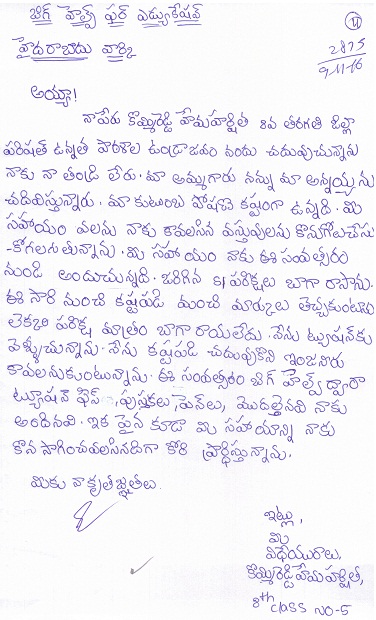 బిగ్ హెల్ప్ ఫర్ ఎడ్యుకేషన్
హైదరాబాదు వార్కి
11
2875
9/11/16
అయ్యా!
నాపేరు కొమ్మిరెడ్డి హేమహర్షిత 8వ తరగతి జిల్లా
పరిషత్ ఉన్నత పాఠశాల ఉండ్రాజవరం నందు చదువుచున్నాను
నాకు నా తండ్రి లేరు. మా అమ్మగారు నన్ను మా అన్నయ్యను
చదివిస్తున్నారు. మా కుటుంబ పోషణ కష్టంగా ఉన్నది. మీ
సహాయం వలను నాకు కావలసిన వస్తువులను కొనుగోటచేసు
-కోగలుగుతున్నాను. మీ సహాయం నాకు ఈ సంవత్సరం
నుండి అందుచున్నది. జరిగిన పరిక్షలు బాగా రాసాను.
ఈ సారి నుంచి కష్టపడి మంచి మార్కులు తెచ్చుకుంటాను
లెక్కల పరిక్ష మాత్రం బాగా రాయలేదు. నేను ట్యుషన్‌కు
వెళ్ళుచున్నాను. నేను కష్టపడి చదువుకొని ఇంజనీరు
కావలనుకుంటున్నాను. ఈ సంవత్సరం బిగ్ హెల్ప్ ద్వారా
ట్యూషన్ ఫీజ్, పుస్తకలు, పెన్‌లు, మొదలైనవి నాకు
అందినవి. ఇక పైన కూడా మీ సహాయాన్ని నాకు
కొన సాగించవలసినదిగా కోరి ప్రార్ధిస్తున్నాను.
మీకు నా కృతజ్ఞతలు.
ఇట్లు,
మీ
విధేయురాలు,
కొమ్మిరెడ్డి హేమహర్షిత,
8th class NO-5